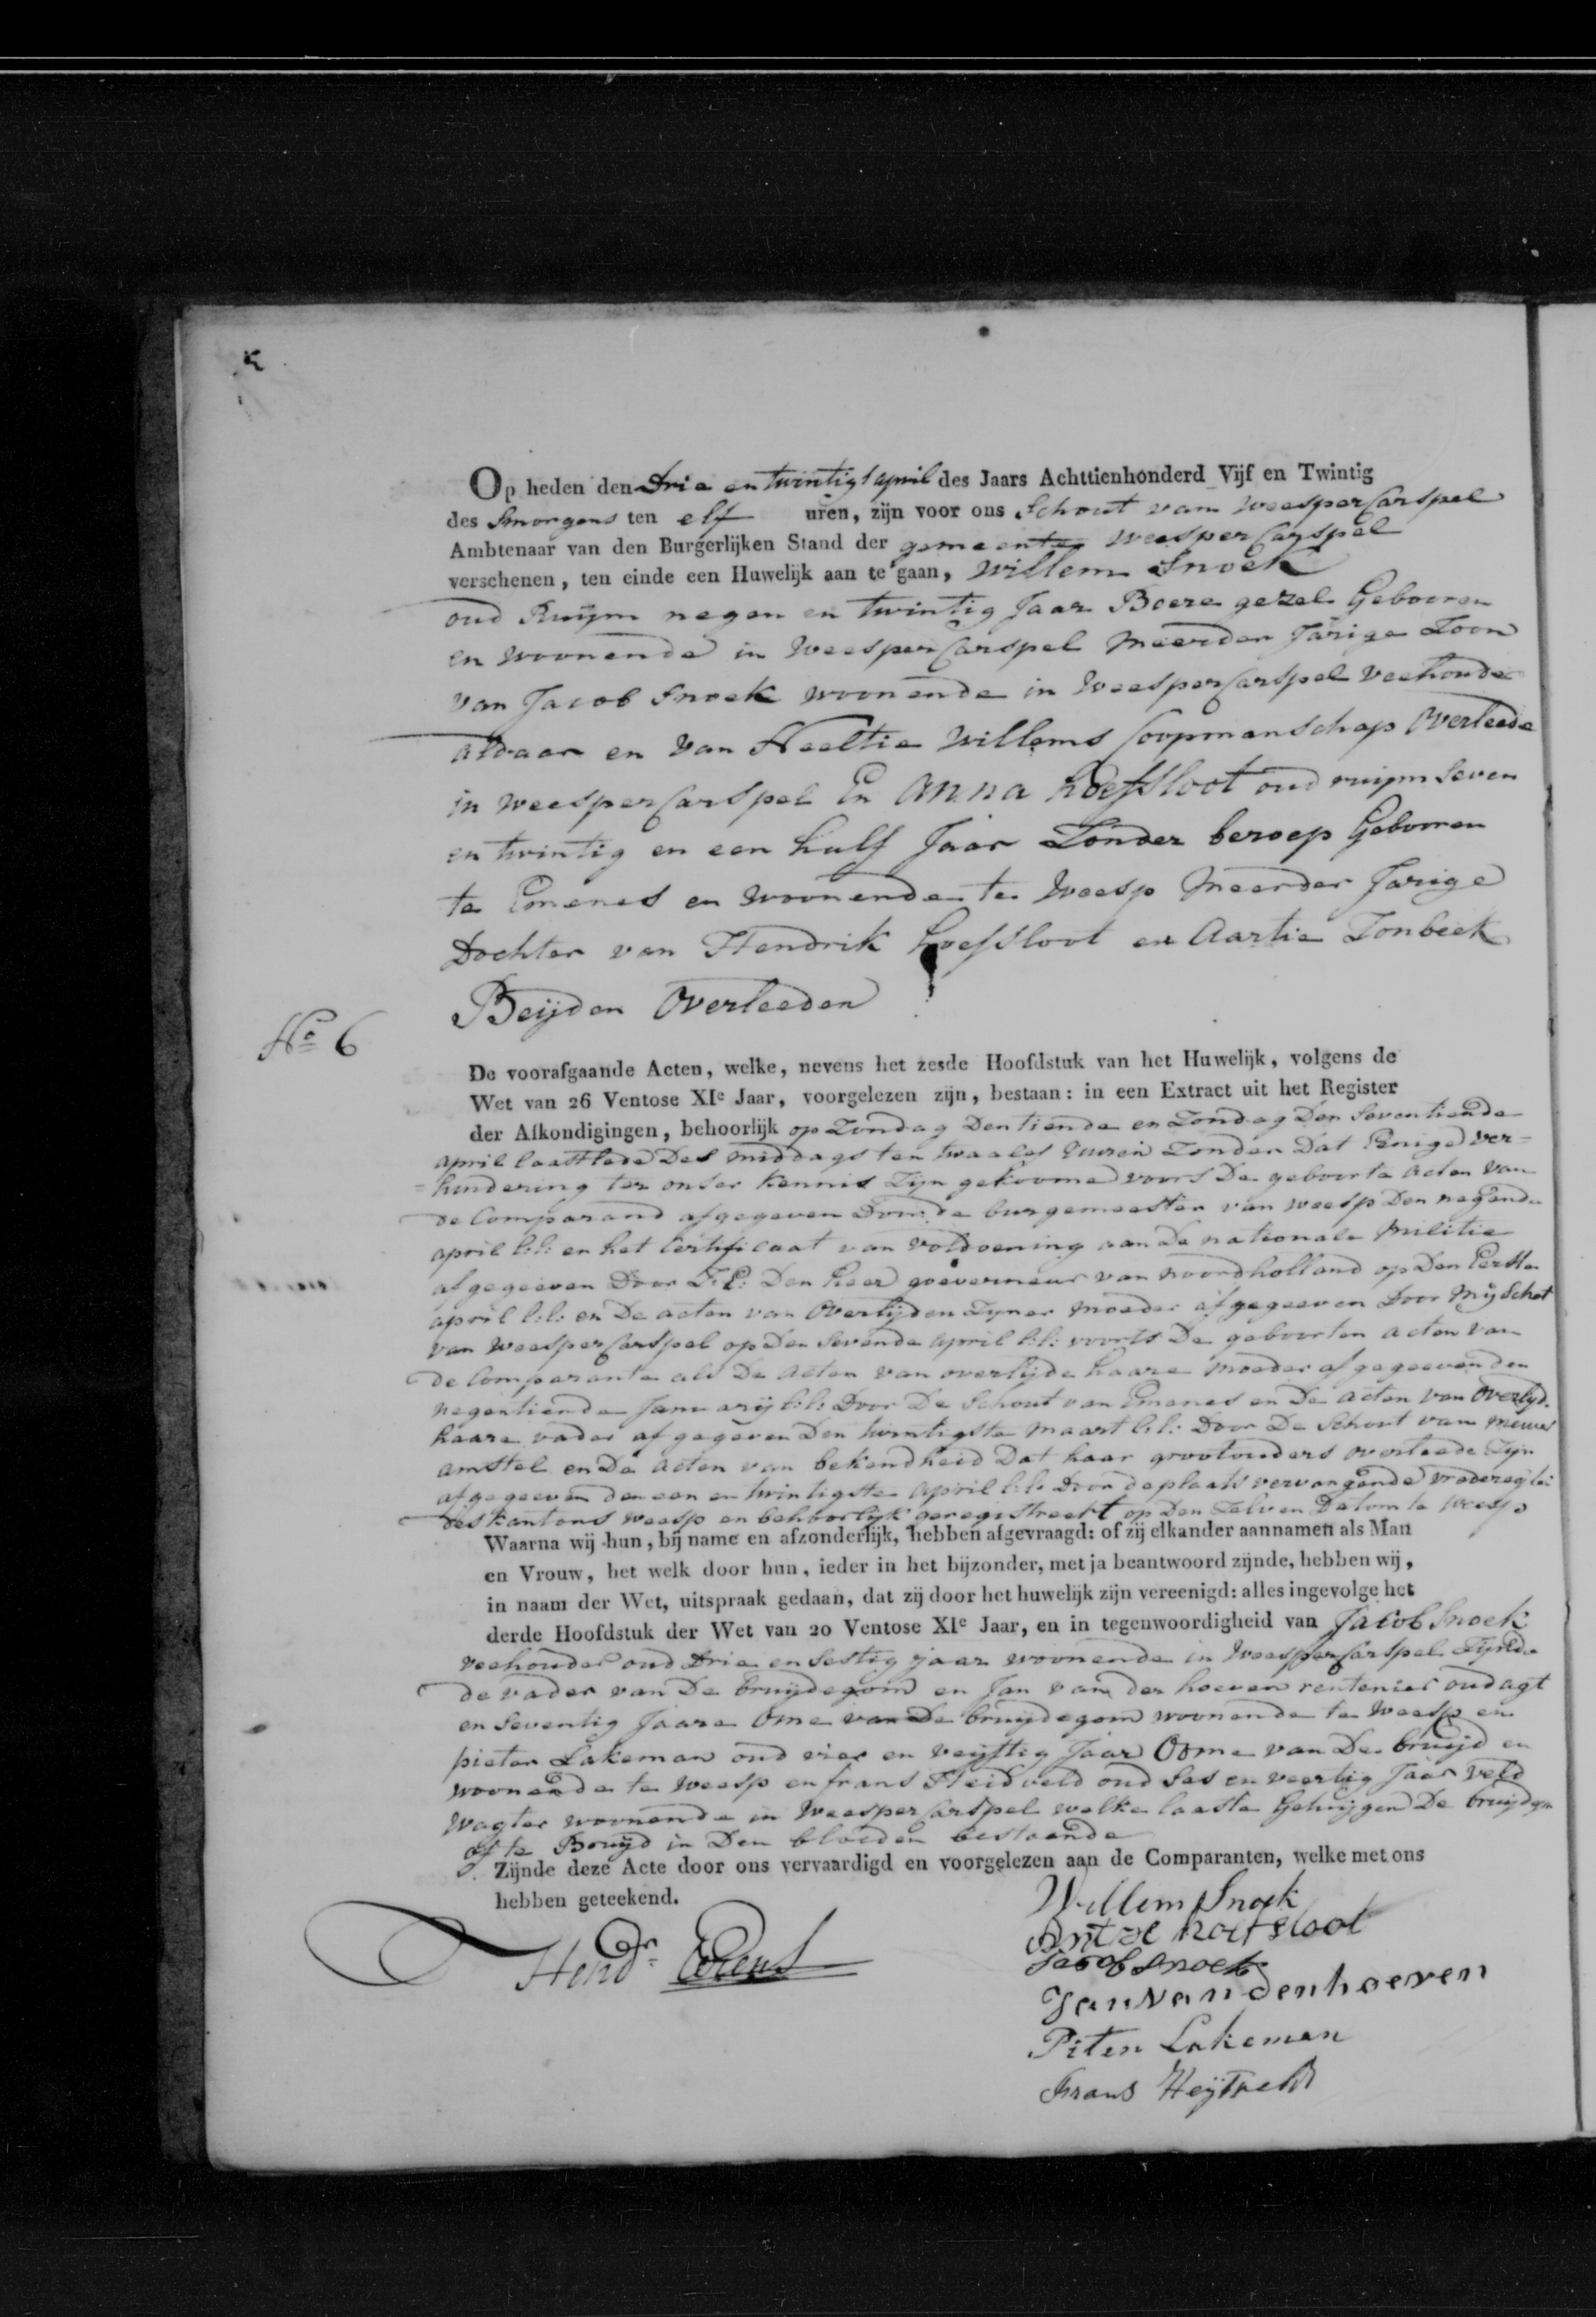 Op heden den Drie en twintigst april des Jaars Achttienhonderd Vijf en Twintig
des Smorgens ten elf uren, zijn voor ons Schout van Weespercarspel
Ambtenaar van den Burgerlijken Stand der gemeente Weespercarspel
verschenen, ten einde een Huwelijk aan te gaan, Willem Snoek
oud Ruijm negen en twintig Jaar Boere gezel Gebooren
en woonende in Weespercarspel Meerder Jarige Zoon
van Jacob Snoek woonende in Weespercarspel veehoude
aldaar en van Neeltie Willems Coopmanschap Overleede
in weespercarspel En Anna hoefsloot oud ruijm Seven
en twintig en een half Jaar Zonder beroep Gebooren
te Emenes en woonende te Weesp Meerder Jarige
Dochter van Hendrik hoefsloot en Aartie Tonbeek
Beijden Overleeden
No 6
De voorafgaande Acten, welke, nevens het zesde Hoofdstuk van het Huwelijk, volgens de
Wet van 26 Ventose XIe Jaar, voorgelezen zijn, bestaan: in een Extract uit het Register
der Afkondigingen, behoorlijk op Zondag Den tiende en Zondag Den Seventiende
april laastlede Des middags ten twaalef uuren Zonder Dat Enige ver=
=hindering ter onser kennis Zijn gekoome voors De geboorte acten van
de Comparand afgegeven Door de burgemeester van weesp Den negende
april l:l: en het Certificaat van voldoening aan De nationale Militie
afgegeeven Door Z:E: Den heer goeverneur van noordholland op Den Eerste
april l:l: en De acten van Overlijden Zyner Moeder afgegeeven Door Mij Schot
van Weespercarspel op Den Sevende April l:l: voorts De geboorten acten van
de Comparante als De Acten van overlijde haare Moeder afgegeeven den
negentiende Januarij l:l: Door De Schout van Emenes en De acten van Overlyd.
haare vader afgegeven Den twintigste Maart l:l: Door De Schout van nieuwer
amstel en De acten van bekendheid Dat haar grootouders overleede Zijn
afgegeeven den een en twintigste April l:l: Door de plaatsvervangende vrederegter
des kantons Weesp en behoorlijk geregistreert op Den Zelven Datom te Weesp
Waarna wij hun, bij name en afzonderlijk, hebben afgevraagd: of zij elkander aannamen als Man
en Vrouw, het welk door hun, ieder in het bijzonder, met ja beantwoord zijnde, hebben wij,
in naam der Wet, uitspraak gedaan, dat zij door het huwelijk zijn vereenigd: alles ingevolge het
derde Hoofdstuk der Wet van 20 Ventose XIe Jaar, en in tegenwoordigheid van Jacob Snoek
veehouder oud Drie en Sestig jaar woonende in Weespercarspel Zijnde
de vader van De bruijdegom en Jan van der hoeven rentenier oud agt
en Seventig Jaare Ome van De bruijdegom woonende te Weesp en
pieter Lakeman oud vier en veijftig Jaar Oome van De bruijd en
woonende te weesp en frans Heidveld oud Ses en veertig Jaar veld
wagter woonende in Weespercarspel welke laaste Getuijgen De bruijdegm
of te Bruijd in Den bloeden bestaende
Zijnde deze Acte door ons vervaardigd en voorgelezen aan de Comparanten, welke met ons
hebben geteekend.
Willem Snoek
Antje hoefsloot
Jacob Snoek
Jan van den hoeven
Piter Lakeman
Frans Heijtveld
Hendr